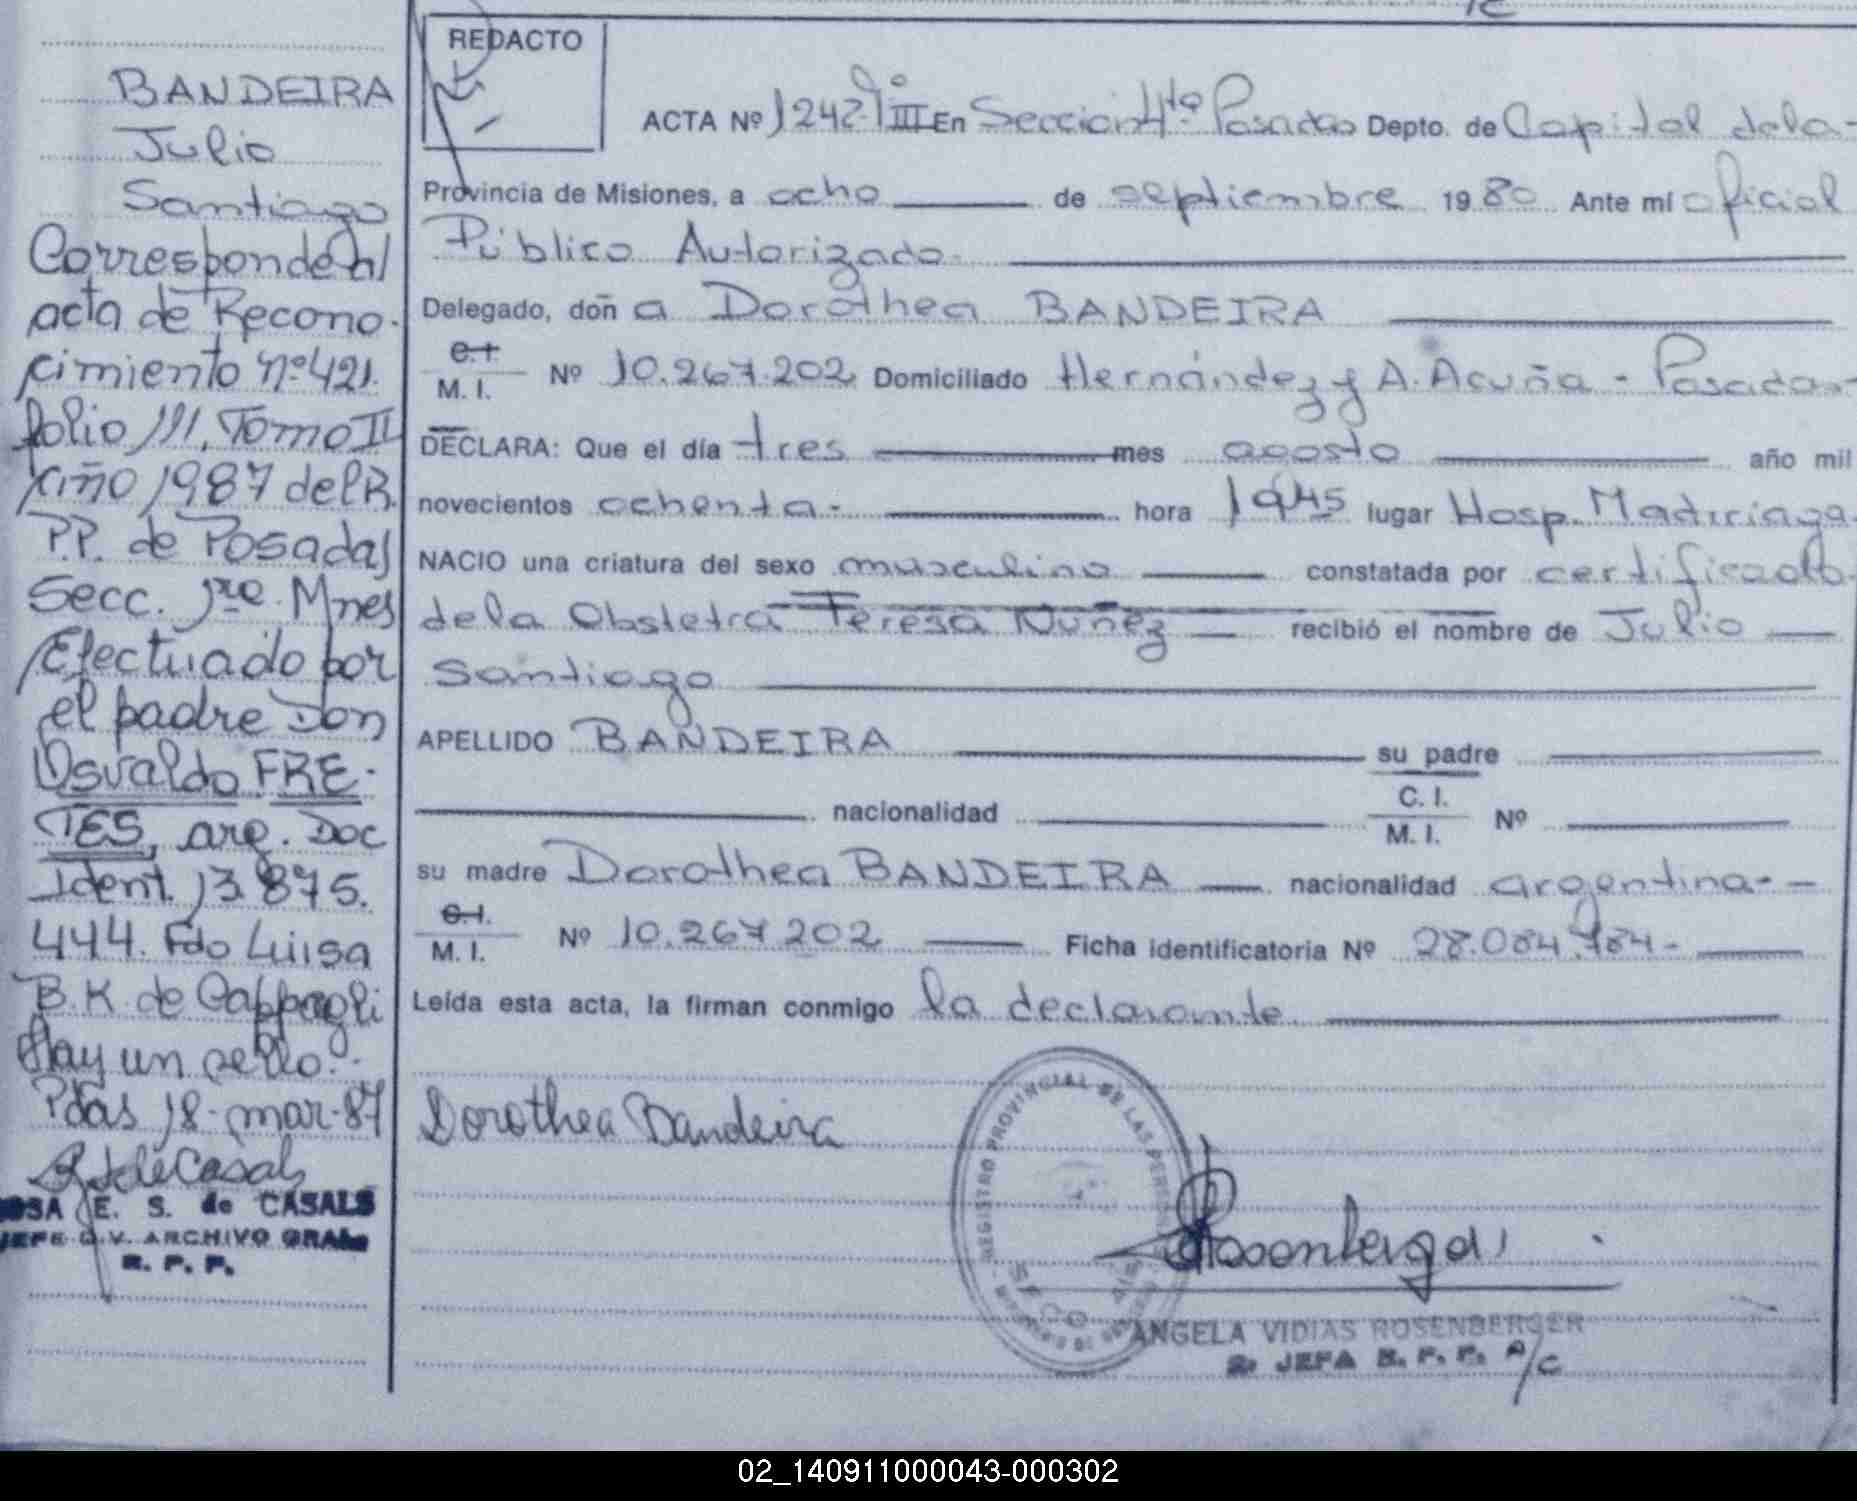 BANDEIRA
Julio
Santiago
Corresponde al
acta de Recono-
cimiento nº 421.
folio 111. Tomo II
año 1987 del R.
P.P. de Posadas
Secc. 1ra. Mnes
Efectuado por
el padre Don
Osvaldo FRE-
TES, arg. Doc
Ident. 13.875.
444. Fdo Luisa
B.K. de Cappagli
Hay un sello.-
Pdas 18-mar-87
de Casals
ROSA E. S. de CASALS
JEFE D.V. ARCHIVO GRAL.
R. P. P.
REDACTO
ACTA Nº 1242 Tº III En Sección 4ta Posadas Depto. de Capital de la-
Provincia de Misiones, a ocho de septiembre 1980 Ante mí oficial
Público Autorizado.
Delegado, doña Dorothea BANDEIRA
C.I.
M. I. Nº 10.267.202 Domiciliado Hernández y A. Acuña - Posadas-
DECLARA: Que el día tres mes agosto año mil
novecientos ochenta- hora 19:45 lugar Hosp. Madariaga.
NACIO una criatura del sexo masculino constatada por certificado
de la Obstetra Teresa Nuñez recibió el nombre de Julio
Santiago
APELLIDO BANDEIRA su padre
nacionalidad C. I.
M. I. Nº
su madre Dorothea BANDEIRA nacionalidad argentina-
C.I.
M. I. Nº 10.267.202 Ficha identificatoria Nº 28.084.984-
Leída esta acta, la firman conmigo la declarante
Dorothea Bandeira
REGISTRO PROVINCIAL DE LAS PERSONAS
Rosenberger
ANGELA VIDIAS ROSENBERGER
2ª JEFA R. P. P. A/C
02_140911000043-000302